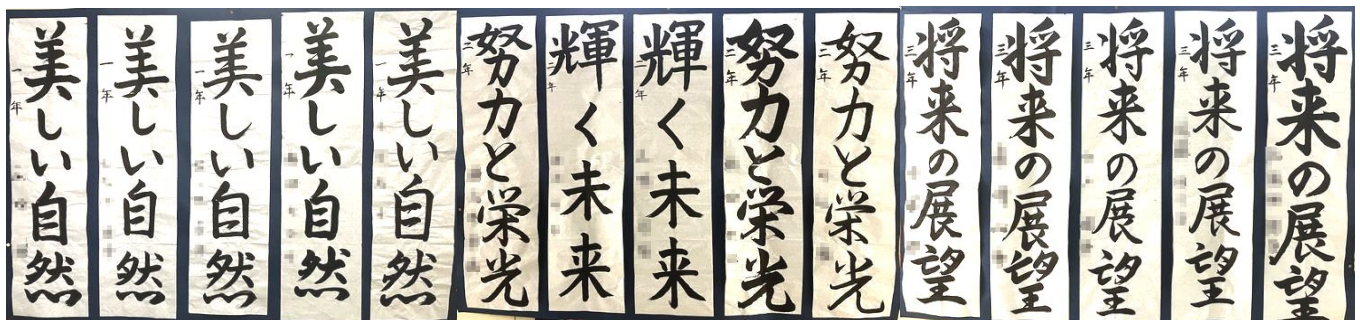 美しい自然
一年
美しい自然
一年
美しい自然
一年
美しい自然
一年
美しい自然
一年
努力と栄光
二年
輝く未来
二年
輝く未来
二年
努力と栄光
二年
努力と栄光
二年
将来の展望
三年
将来の展望
三年
将来の展望
三年
将来の展望
三年
将来の展望
三年